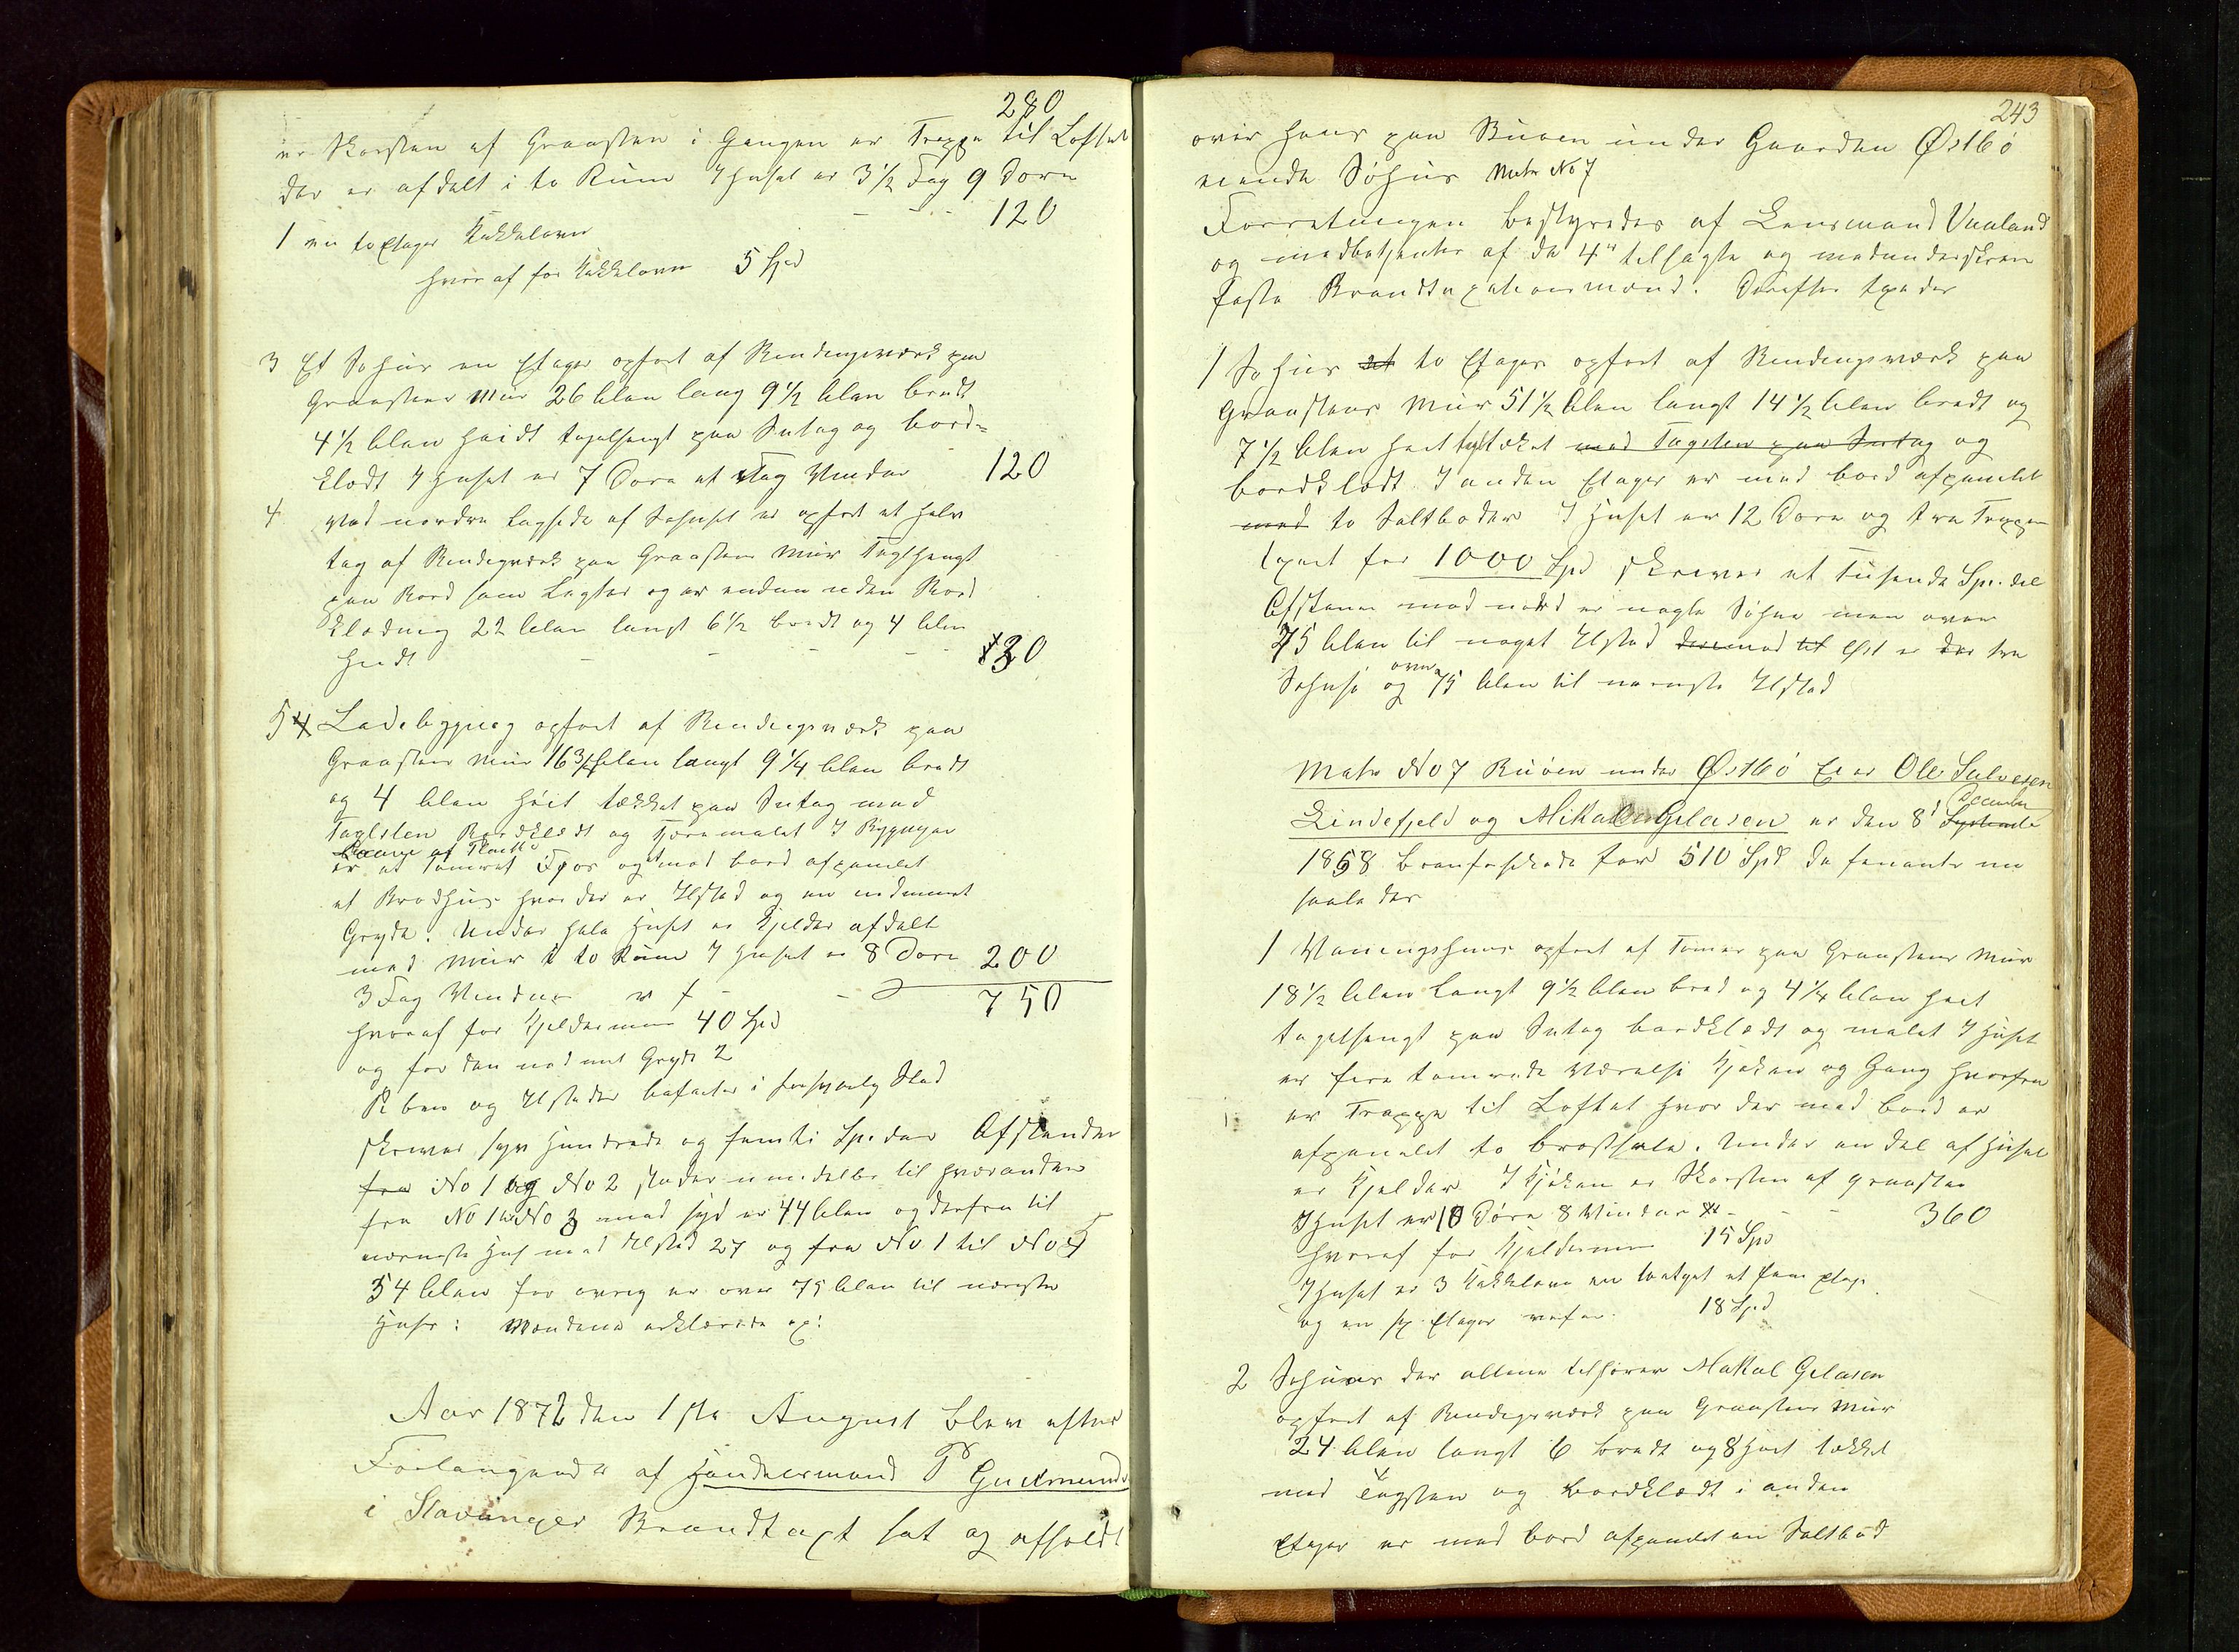 280
er Skorsten af Graasten i Gangen er Trappe til Loftet
der er afdelt i to Rum I Huset er 3 1/2 Fag 9 Dore
120
1 en to Etages Kakkelovn
hvoraf for Kakkelovn 5 Spd
3 Et Sohus en Etages opfort af Bindingsværk paa
Graastens Mur 26 Alen lang 9 1/2 Alen bredt
4 1/2 Alen høidt tegelhengt paa Sutag og bord-
klædt I Huset er 7 Dore et Fag Vinduer 120
4 Ved nordre Langside af Sohuset er opfort et halv
tag af Bindingværk paa Graastens Mur Teglhengt
paa Bord som Lagter og er enden uden Bord
klædning 22 Alen langt 6 1/2 bredt og 4 Alen
høidt - - - - 30
5 Ladebygning opfort af Bindingsværk paa
Graastens Mur 16 3/4 Alen langt 9 1/4 Alen bredt
og 4 Alen høit tækket paa Sutag med
Taglsten Bordklædt og Tjæremalet I Bygningen
er et tomret Fjos og med bord afpanelet
et Brødhus hvor der er Ildsted og en indmuret
Gryde. Under hele Huset er Kjelder afdelt
med Mur i to Rum I Huset er 8 Dore 200
3 Fag Vinduer - - 750
hvoraf for Kjeldermur 40 Spd
og for den indmuret Gryde 2
Piben og Ildsteder befandtes i forsvarlig Stand
skriver syv Hundrede og femti Spesdaler Afstanden
fra No 1 og No 2 stoder umidelbar til hverandre
fra No 1 til No 3 mod syd er 44 Alen og derfra til
nærmeste Hus med Ildsted 27 og fra No 1 til No 5
54 Alen for ovrig er over 75 Alen til nærmeste
Huse: Mændene erklærede
Aar 1872 den 1ste August blev efter
Forlangende af Handelsmand P Gudmunds
i Stavanger Brandtaxt sat og afholdt
243
over Hans paa Buøen under Gaarden Østbø
eiende Søhus Matr No 7
Forretningen bestyredes af Lensmand Vaaland
og medbetjentes af de 4re tilsagte og medunderskrevne
faste Brandtaxationsmænd. Derefter taxerdes
1 Sohus et to Etages opfort af Bindingsværk paa
Graastens Mur 51 1/2 Alen langt 14 1/2 Alen bredt og
7 1/2 Alen høit tegltækket med Tagsten paa Sutag og
bordklædt I anden Etages er med bord afpanelet
med to Saltboder I Huset er 12 Dore og tre Trapper
taxeret for 1000 Spd skriver et Tusende Spe. del
Afstanden mod nord er nogle Søhuse men over
75 Alen til noget Ildsted deremod til Øst er der tre
Sohuse og over 75 Alen til nærmeste Ildsted
Matr No 7 Buøen under Østbø Eier Ole Salvesen
Lindefjeld og Mikal Gilasen er den 8de December
1868 Brandforsikrede for 510 Spd de fandtes nu
saaledes
1 Vaaningshuus opfort af Tømer paa Graastens Mur
18 1/2 Alen Langt 9 1/2 Alen bred og 4 1/4 Alen høit
tegelhengt paa Sutag bordklædt og malet I Huset
er fire tomrede Værelse Kjøken og Gang hvorfra
er Trappe til Loftet hvor der med bord er
afpanelet to . Under en del af Huset
er Kjelder I Kjøken er Skorsten af graasten
I Huset er 10 Døre 8 Vinduer - - 360
hvoraf for Kjeldermur 15 Spd
I Huset er 3 Kakkelovn en toetages et fem etage
og en sex Etages 18 Spd
2 Sohuus der allene tilhører Mikal Gilasen
opfort af Bindingsværk paa Graastens Mur
24 Alen langt 6 bredt og 8 høit tækket
med Tegsten og bordklædt i anden
Etages er med bord afpanelet en Saltbod